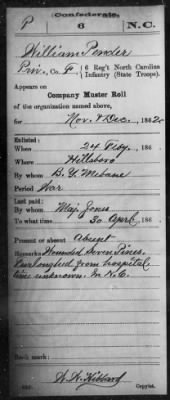 Confederate.
P 6 N.C.
William Pender
Priv., Co. F, 6 Reg't North Carolina
Infantry (State Troops).
Appears on
Company Muster Roll
of the organization named above,
for Nov. & Dec., 1862.
Enlisted:
When 24 Feby., 186
Where Hillsboro
By whom B. Y. Mebane
Period War
Last paid:
By whom Maj. Jones
To what time 30 April, 186
Present or absent Absent
Remarks: Wounded Seven Pines.
Furloughed from hospital
time unknown. In N.C.
Book mark:
Copyist.